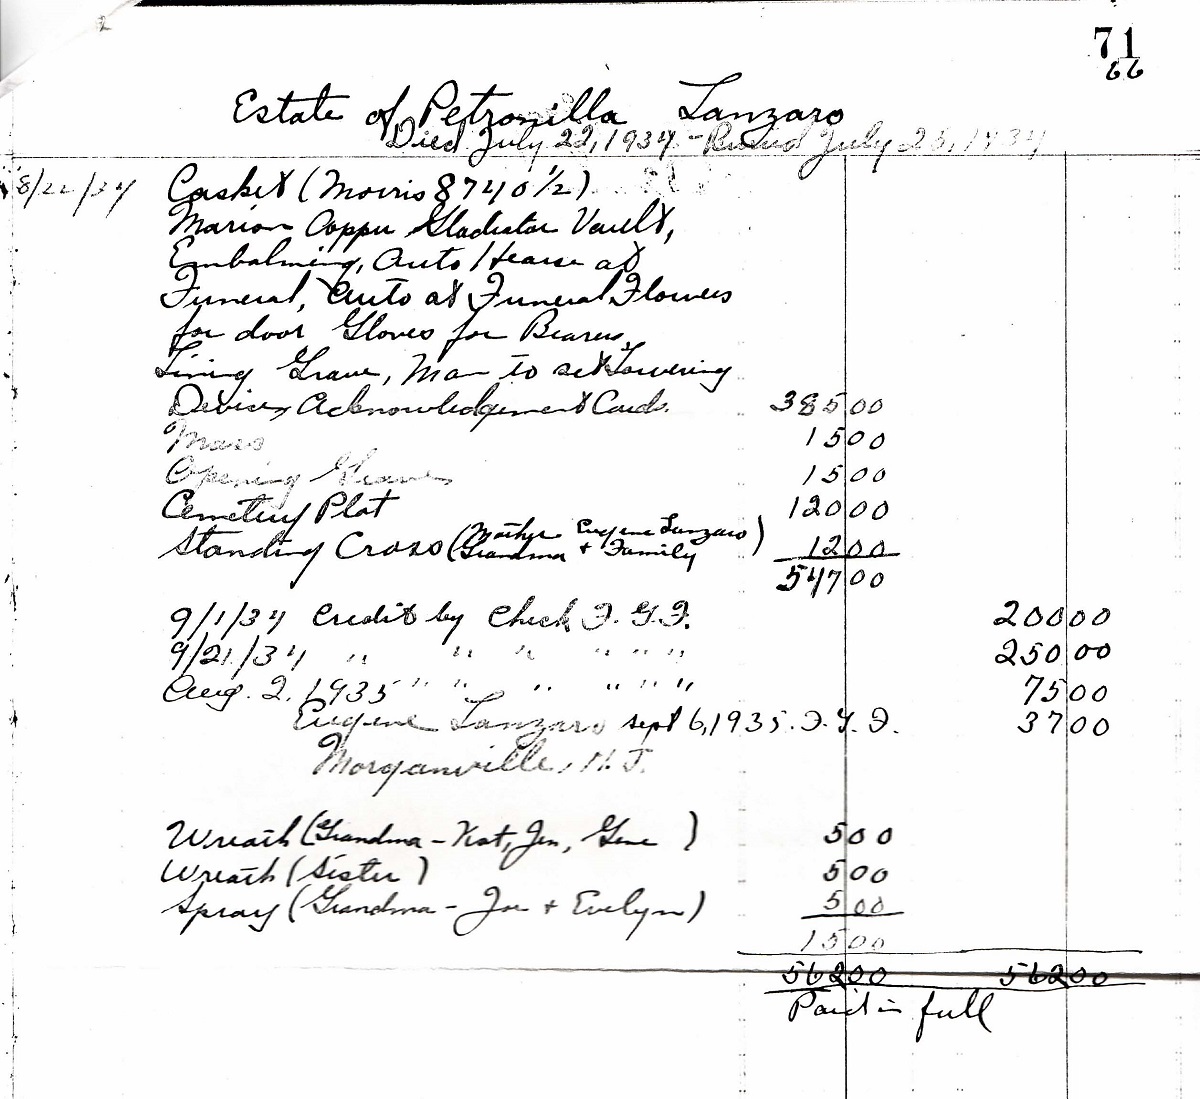 2
71
66
Estate of Petronilla Lanzaro
Died July 22, 1934 - Buried July 25, 1934
8/22/34 Casket (Morris 8740 1/2)
Marion Copper Gladiator Vault,
Embalming, Auto Hearse at
Funeral, Auto at Funeral Flowers
for door Gloves for Bearers,
Lining Grave, Man to set Lowering
Device, Acknowledgement Cards. 385 00
Mass 15 00
Opening Grave 15 00
Cemetery Plot 120 00
Standing Cross (Mother Eugene Lanzaro Grandma + Family) 12 00
547 00
9/1/34 Credit by Check F.G.F. 200 00
9/21/34 " " " " " " 250 00
Aug. 2, 1935 " " " " " " 75 00
Eugene Lanzaro Sept 6, 1935. F.G.F. 37 00
Morganville, N.J.
Wreath (Grandma - Kat, Jen, Gene) 5 00
Wreath (Sister) 5 00
Spray (Grandma - Joe + Evelyn) 5 00
15 00
562 00 562 00
Paid in full